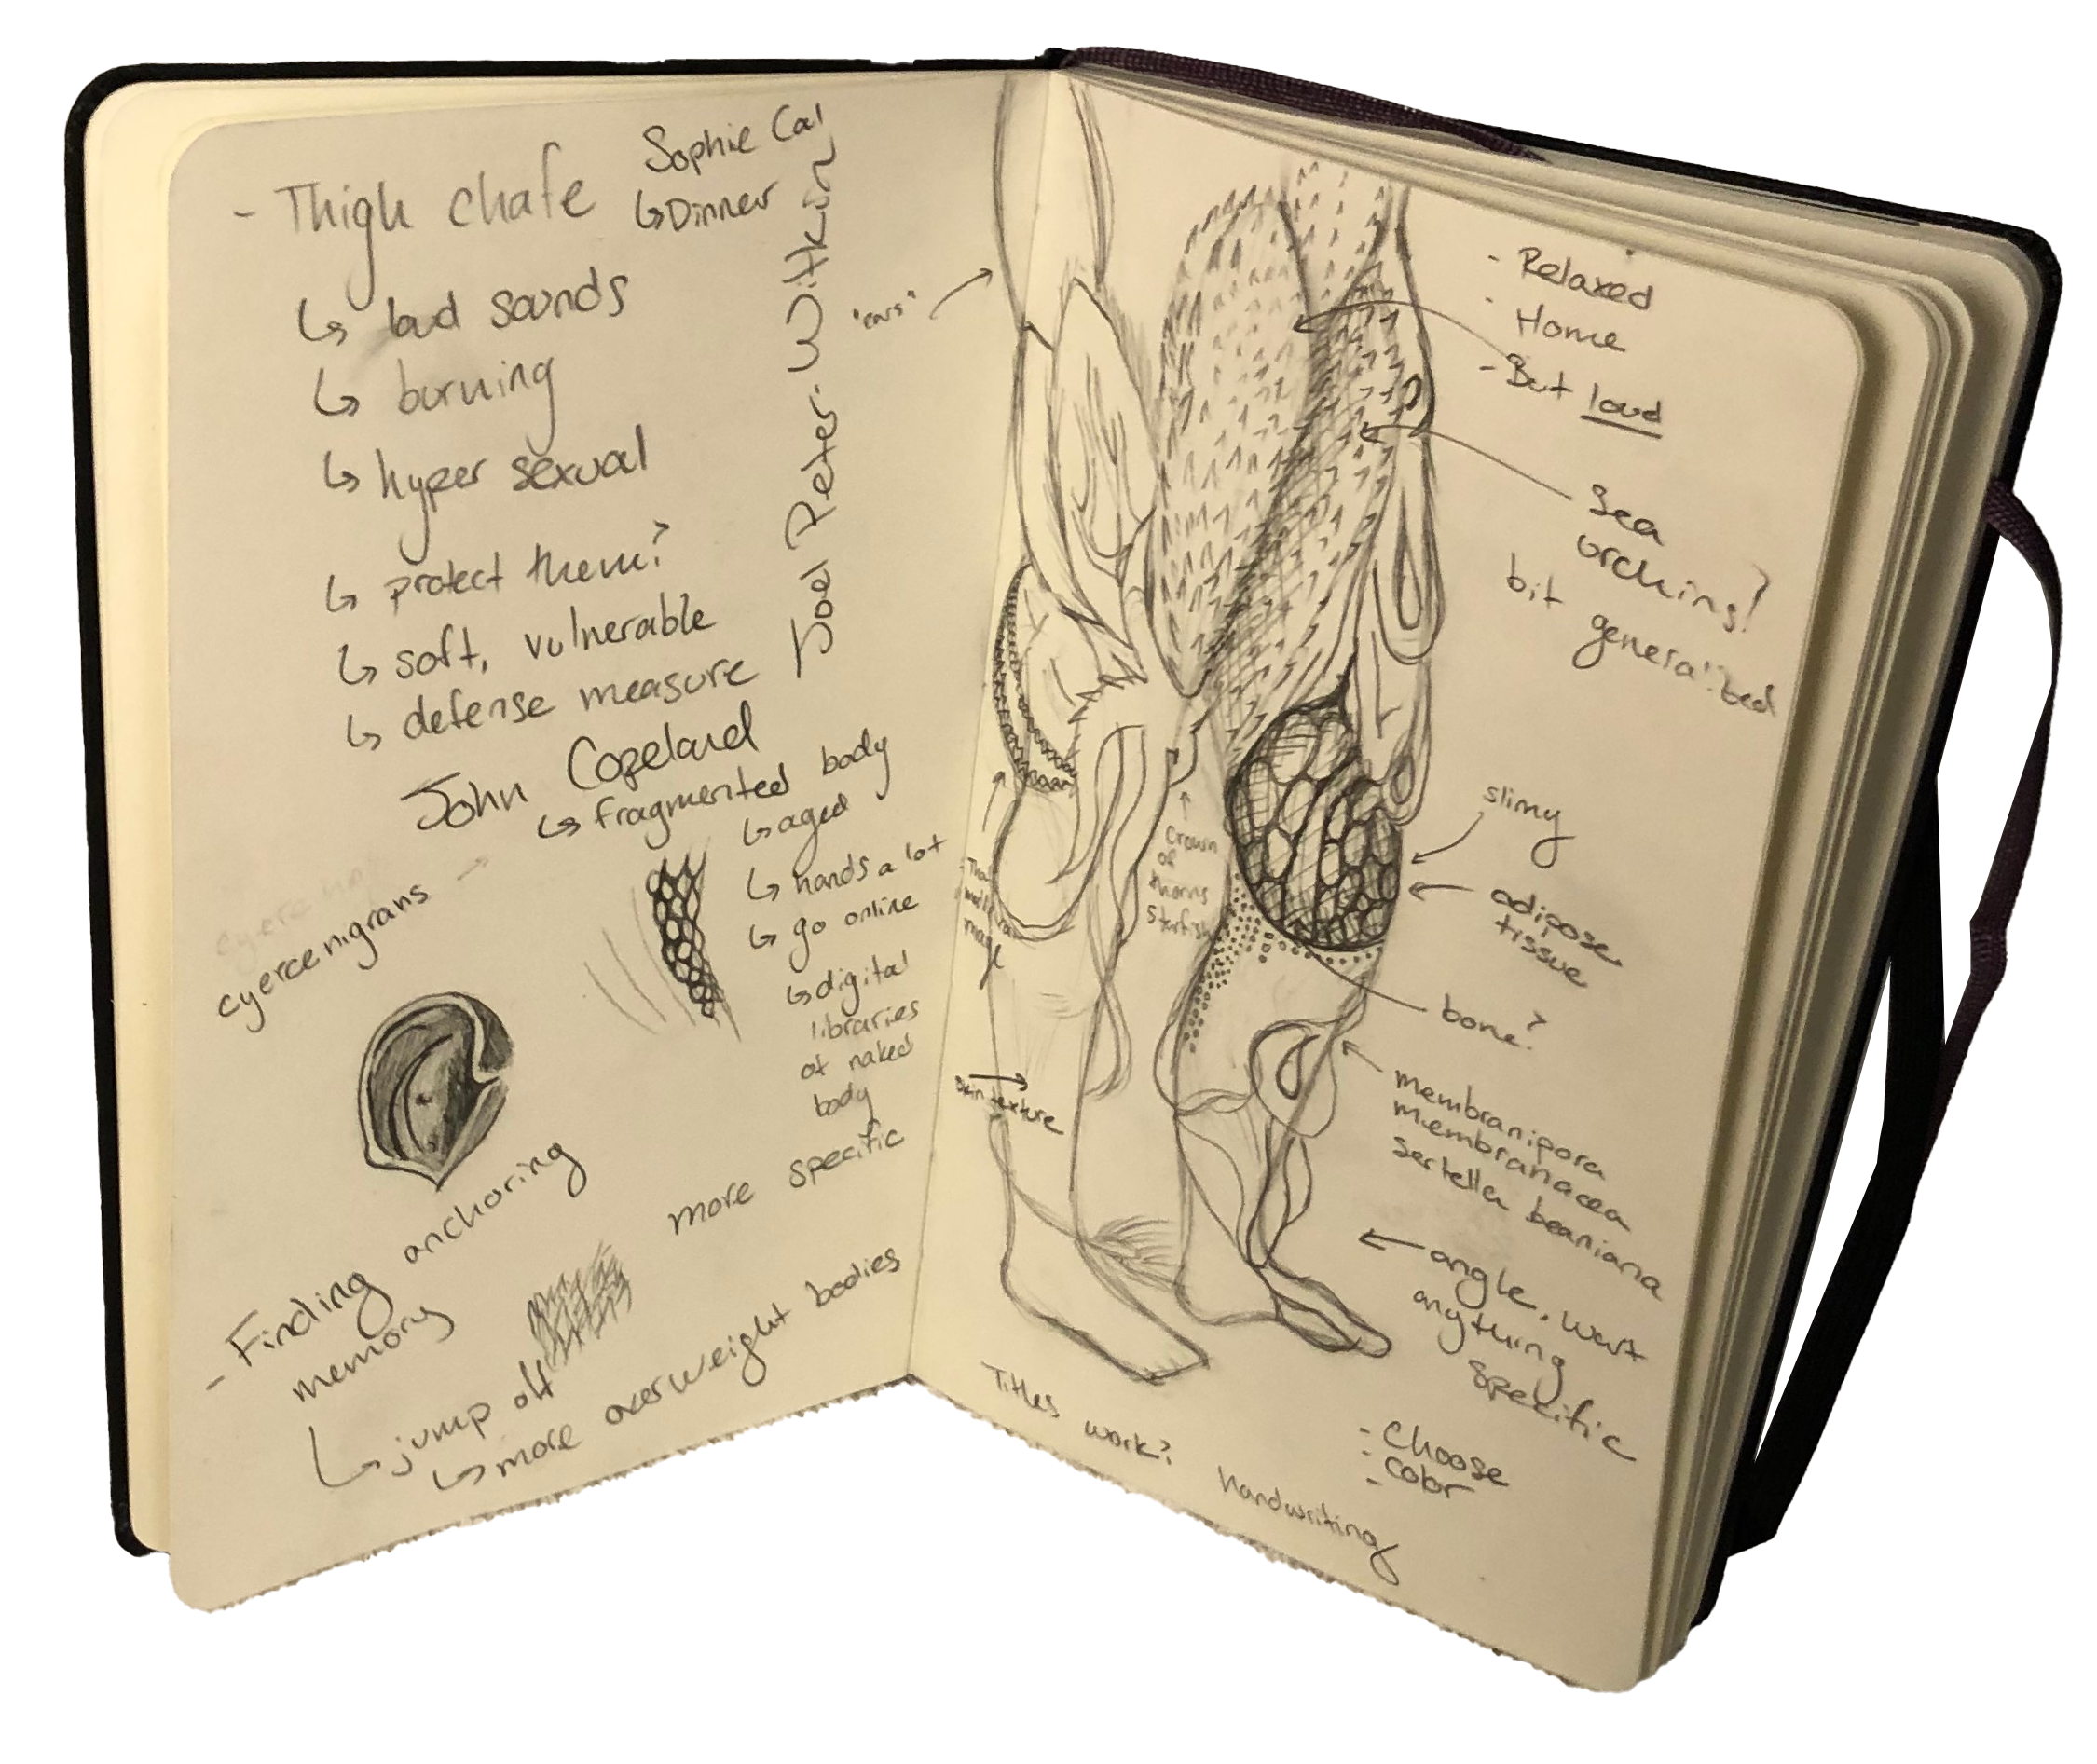 - Thigh chafe
↳ loud sounds
↳ burning
↳ hyper sexual
↳ protect them?
↳ soft, vulnerable
↳ defense measure
Sophie Cal
↳ Dinner
Joel Peter-Witkin
John Copeland
↳ fragmented body
↳ aged
↳ hands a lot
↳ go online
↳ digital
libraries
of naked
body
more specific
cyerce nigrans
- Finding anchoring
memory
↳ jump off
↳ more overweight bodies
"ears"
crown
of
thorns
starfish
skin texture
- Relaxed
- Home
- But loud
Sea
urchins!
bit generalized
slimy
adipose
tissue
bone?
membranipora
membranacea
sertella beaniana
angle, want
anything
specific
- Choose
- color
-
Titles work? handwriting